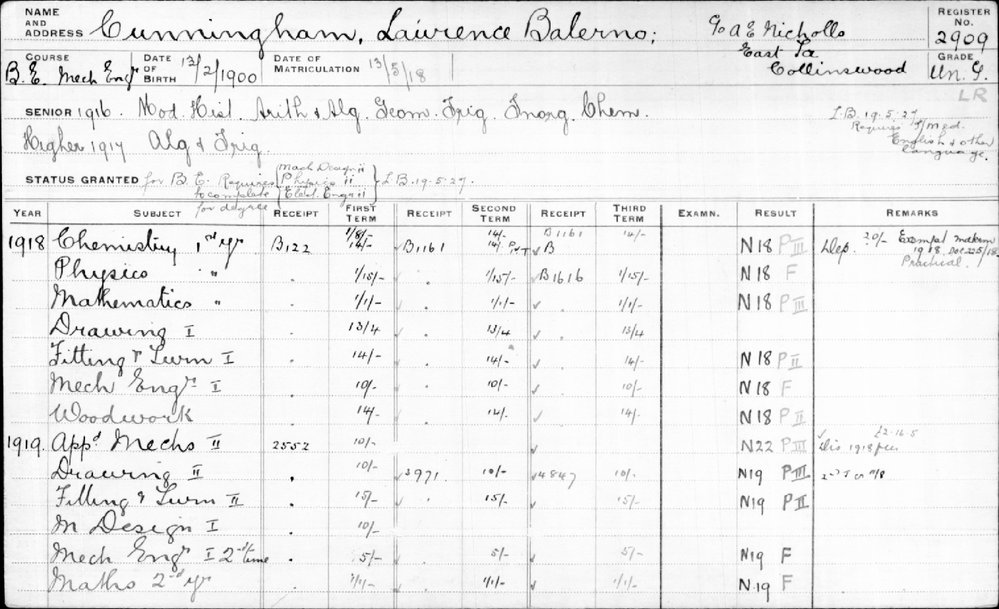 NAME AND ADDRESS Cunningham, Lawrence Balerno; c/o A E Nicholls REGISTER No. 2909
East Ta
Collinswood
COURSE B.E. Mech Engr DATE OF BIRTH 13/2/1900 DATE OF MATRICULATION 13/5/18 GRADE Un. G.
LR
SENIOR 1916 Mod. Hist. Arith & Alg. Geom. Trig. Inorg. Chem. L.B. 19.5.27.
Requires f/med.
English & other
language.
Higher 1917 Alg & Trig.
STATUS GRANTED for B.E. Requires to complete for degree { Mach Design ii Physics ii Elect. Engr ii } L.B. 19.5.27.
YEAR SUBJECT RECEIPT FIRST TERM RECEIPT SECOND TERM RECEIPT THIRD TERM EXAMN. RESULT REMARKS
1918 Chemistry 1st yr B122 1/8/- 14/- B1161 14/- 14/- B1161 B 14/- N18 P III Dep. 20/- Exempt
1918
Practical.
Physics " . 1/15/- 1/15/- B1616 1/15/- N18 F
Mathematics " . 1/1/- 1/1/- 1/1/- N18 P III
Drawing I . 13/4 13/4 13/4
Fitting & Turn I . 14/- 14/- 14/- N18 P II
Mech Engr I . 10/- 10/- 10/- N18 F
Woodwork . 14/- 14/- 14/- N18 P II
1919. Appd Mechs II 2552 10/- N22 P III £2-16-5
1918 fees
Drawing II . 10/- 3971 10/- 4847 10/- N19 P III
Fitting & Turn II . 15/- 15/- 15/- N19 P II
M Design I . 10/-
Mech Engr I 2nd time . 5/- 5/- 5/- N19 F
Maths 2nd yr . 1/1/- 1/1/- 1/1/- N.19 F